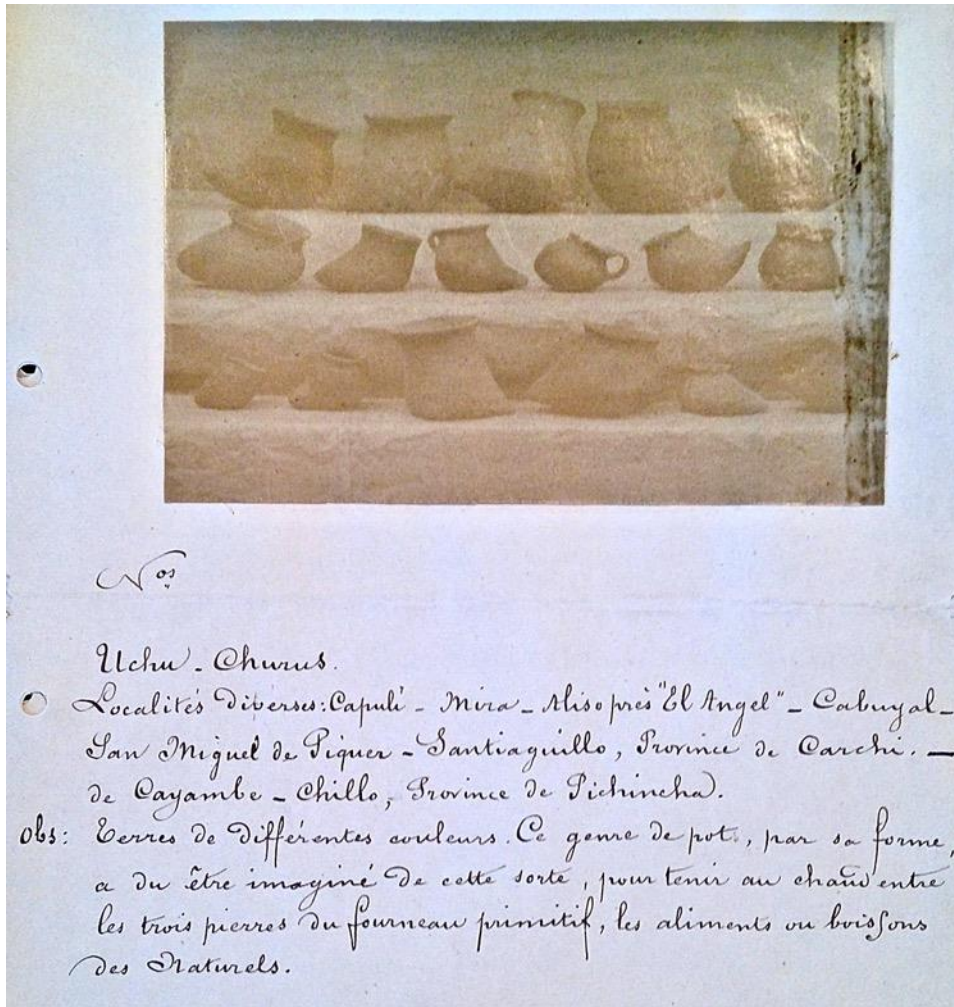 Nos
Uchu - Churus.
Localités diverses: Capuli - Mira - Aliso près "El Angel" - Cabuyal -
San Miguel de Piquer - Santiaguillo, Province de Carchi. —
de Cayambe - Chillo, Province de Pichincha).
Obs: Terres de différentes couleurs. Ce genre de pot, par sa forme,
a du être imaginé de cette sorte, pour tenir au chaud entre
les trois pierres du fourneau primitif, les aliments ou boissons
des Naturels.